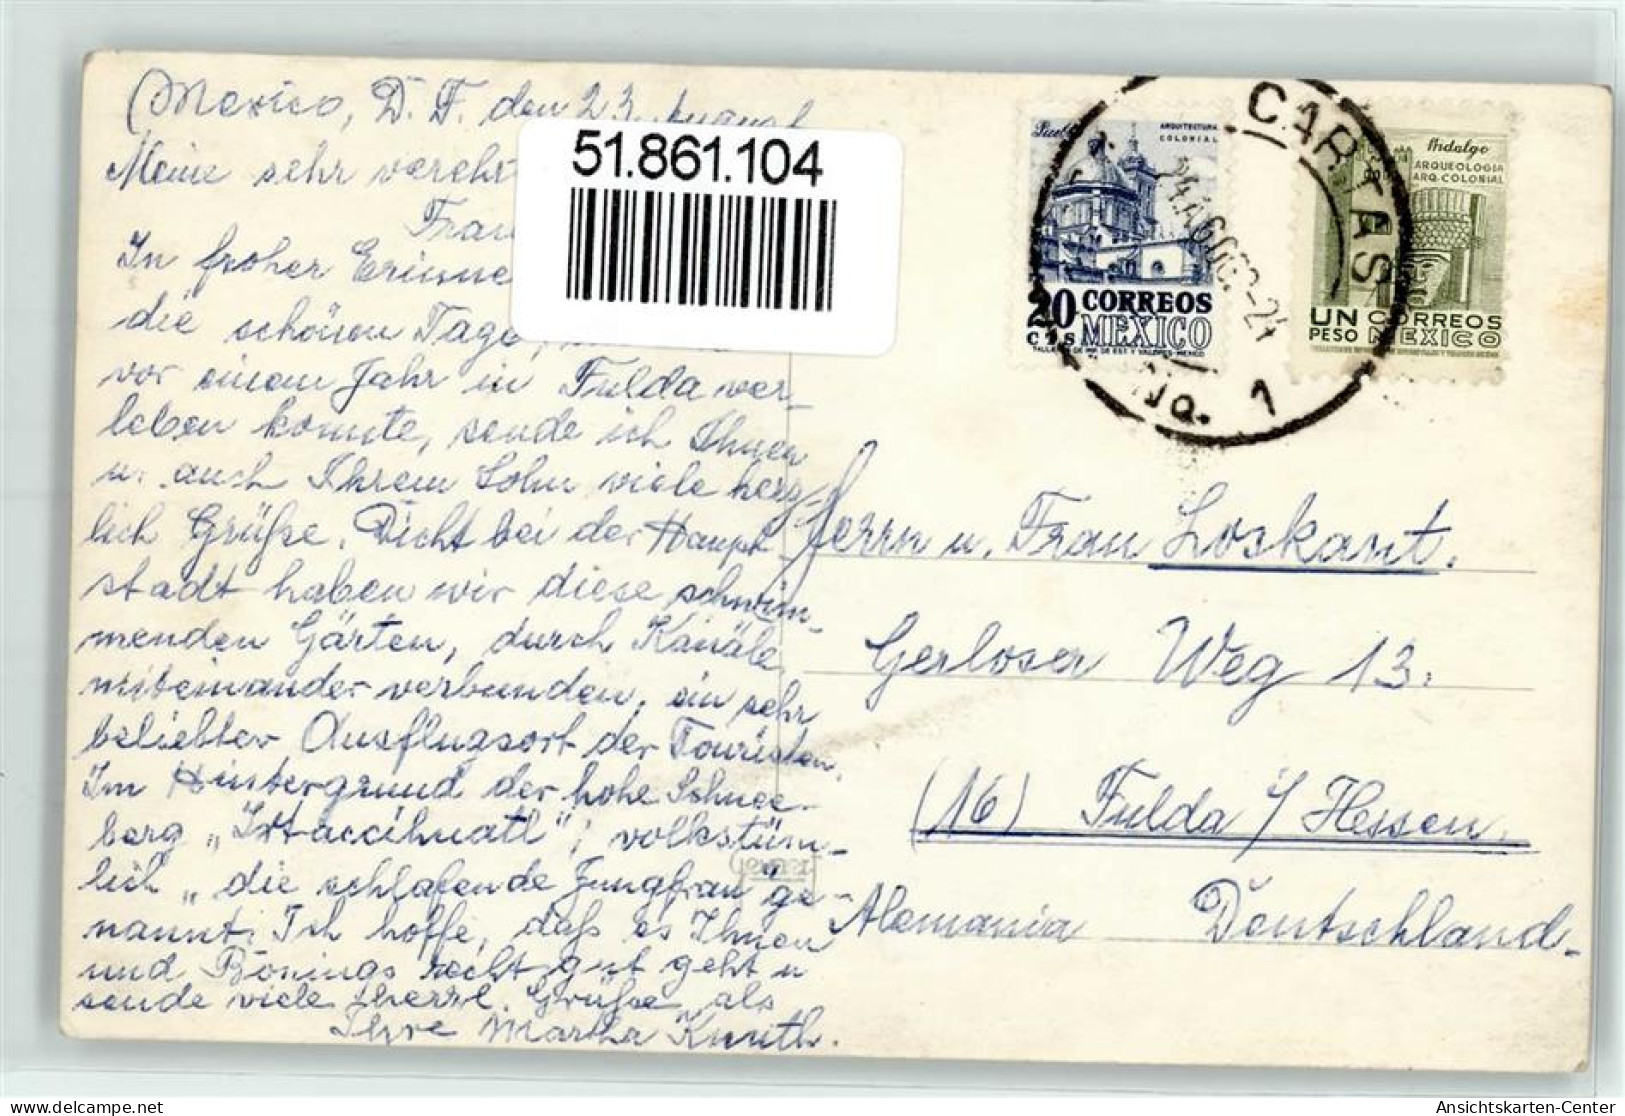 Mexico, D. F. den 23. August
Meine sehr verehrt
Frau
In froher Erinne
die schönen Tage,
vor einem Jahr in Fulda ver-
leben konnte, sende ich Ihnen
u. auch Ihrem Sohn viele herz-
lich Grüße. Dicht bei der Haupt-
stadt haben wir diese schwim-
menden Gärten, durch Kanäle
miteinander verbunden, ein sehr
beliebter Ausflugsort der Touristen.
Im Hintergrund der hohe Schnee-
berg „Ixtaccihuatl", volkstüm-
lich „die schlafende Jungfrau ge-
nannt. Ich hoffe, daß es Ihnen
und Bönings recht gut geht u
sende viele herzl. Grüße als
Ihre Martha Knuth.
51.861.104
Puebla
ARQUITECTURA
COLONIAL
20 CORREOS
CTS MEXICO
CARTAS
24 AGO
No. 1
Hidalgo
ARQUEOLOGIA
ARQ. COLONIAL
UN CORREOS
PESO MEXICO
Herrn u. Frau Loskant.
Gerloser Weg 13.
(16) Fulda / Hessen.
Alemania Deutschland.
Ansichtskarten-Center